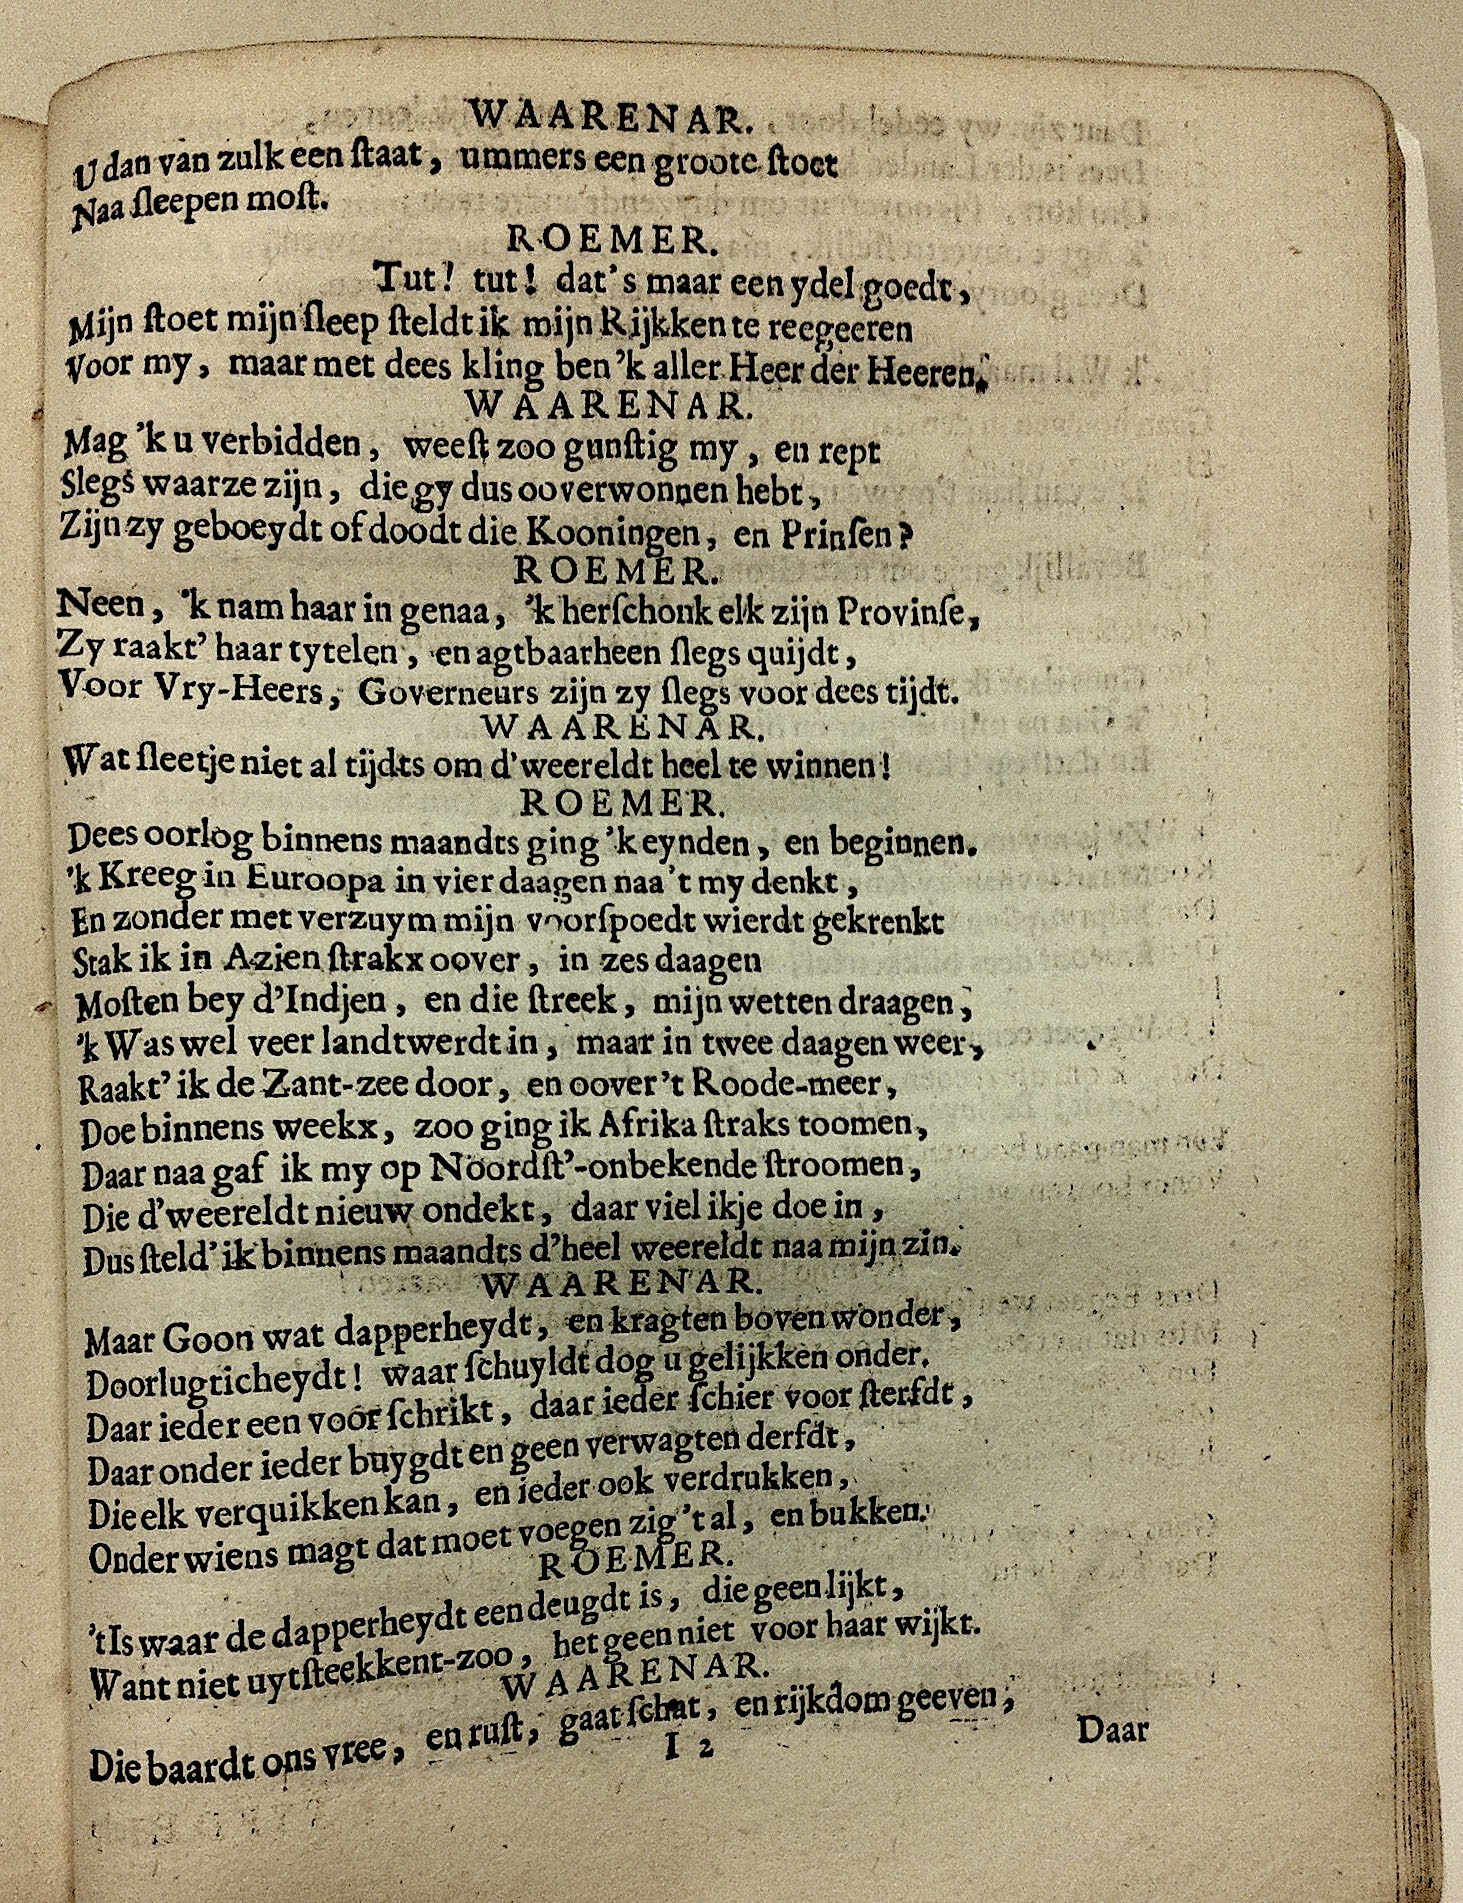 WAARENAR.
U dan van zulk een ſtaat, ummers een groote ſtoet
Naa ſleepen moſt.
ROEMER.
Tut! tut! dat's maar een ydel goedt,
Mijn ſtoet mijn ſleep ſteldt ik mijn Rijkken te reegeeren
Voor my, maar met dees kling ben 'k aller Heer der Heeren.
WAARENAR.
Mag 'k u verbidden, weeſt zoo gunſtig my, en rept
Slegs waarze zijn, die gy dus ooverwonnen hebt,
Zijn zy geboeydt of doodt die Kooningen, en Prinſen?
ROEMER.
Neen, 'k nam haar in genaa, 'k herſchonk elk zijn Provinſe,
Zy raakt' haar tytelen, en agtbaarheen ſlegs quijdt,
Voor Vry-Heers, Governeurs zijn zy ſlegs voor dees tijdt.
WAARENAR.
Wat ſleetje niet al tijdts om d'weereldt heel te winnen!
ROEMER.
Dees oorlog binnens maandts ging 'k eynden, en beginnen.
'k Kreeg in Euroopa in vier daagen naa 't my denkt,
En zonder met verzuym mijn voorſpoedt wierdt gekrenkt
Stak ik in Azien ſtrakx oover, in zes daagen
Moſten bey d'Indjen, en die ſtreek, mijn wetten draagen,
'k Was wel veer landtwerdt in, maar in twee daagen weer,
Raakt' ik de Zant-zee door, en oover't Roode-meer,
Doe binnens weekx, zoo ging ik Afrika ſtraks toomen,
Daar naa gaf ik my op Noordſt'-onbekende ſtroomen,
Die d'weereldt nieuw ondekt, daar viel ikje doe in,
Dus ſteld' ik binnens maandts d'heel weereldt naa mijn zin.
WAARENAR.
Maar Goon wat dapperheydt, en kragten boven wonder,
Doorlugticheydt! waar ſchuyldt dog u gelijkken onder.
Daar ieder een voor ſchrikt, daar ieder ſchier voor ſterfdt,
Daar onder ieder buygdt en geen verwagten derfdt,
Die elk verquikken kan, en ieder ook verdrukken,
Onder wiens magt dat moet voegen zig 't al, en bukken.
ROEMER.
't Is waar de dapperheydt een deugdt is, die geen lijkt,
Want niet uytſteekkent-zoo, het geen niet voor haar wijkt.
WAARENAR.
Die baardt ons vree, en ruſt, gaat ſchat, en rijkdom geeven,
I 2
Daar